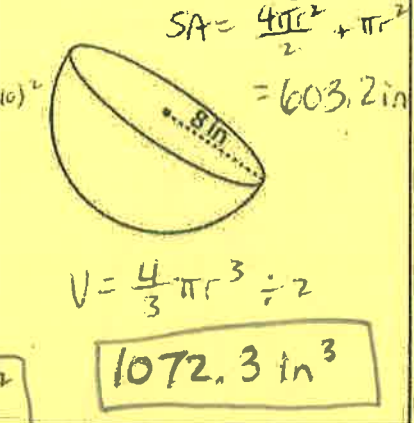 SA = 4πr²/2 + πr²
= 603.2 in
8 in
V = 4/3 πr³ ÷ 2
1072.3 in³